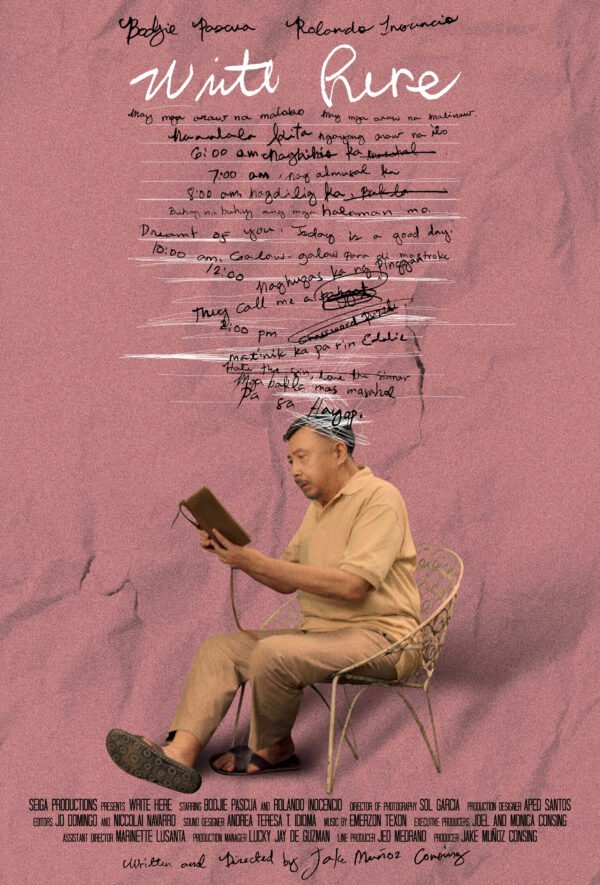 Bodjie Pascua Rolando Inocencio
Write Here
May mga araw na malabo May mga araw na malinaw
Naaalala kita ngayong araw na ito
6:00 am Nagbihis ka
7:00 am, nag almusal ka
8:00 am nagdilig ka,
Buhay na buhay ang mga halaman mo.
Dreamt of you. Today is a good day.
10:00 am. Galaw-galaw para di mastroke
12:00 naghugas ka ng Pinggan
They call me a
2:00 pm Crossword puzzle
matinik ka parin Eddie
Hate the sin, love the sinner
Mga bakla mas masahol
Pa sa Hayop.
SEIGA PRODUCTIONS PRESENTS WRITE HERE STARRING BODJIE PASCUA AND ROLANDO INOCENCIO DIRECTOR OF PHOTOGRAPHY SOL GARCIA PRODUCTION DESIGNER APED SANTOS
EDITORS JD DOMINGO AND NICCOLAI NAVARRO SOUND DESIGNER ANDREA TERESA T. IDIOMA MUSIC BY EMERZON TEXON EXECUTIVE PRODUCERS JOEL AND MONICA CONSING
ASSISTANT DIRECTOR MARINETTE LUSANTA PRODUCTION MANAGER LUCKY JAY DE GUZMAN LINE PRODUCER JED MEDRANO PRODUCER JAKE MUÑOZ CONSING
Written and Directed by Jake Muñoz Consing